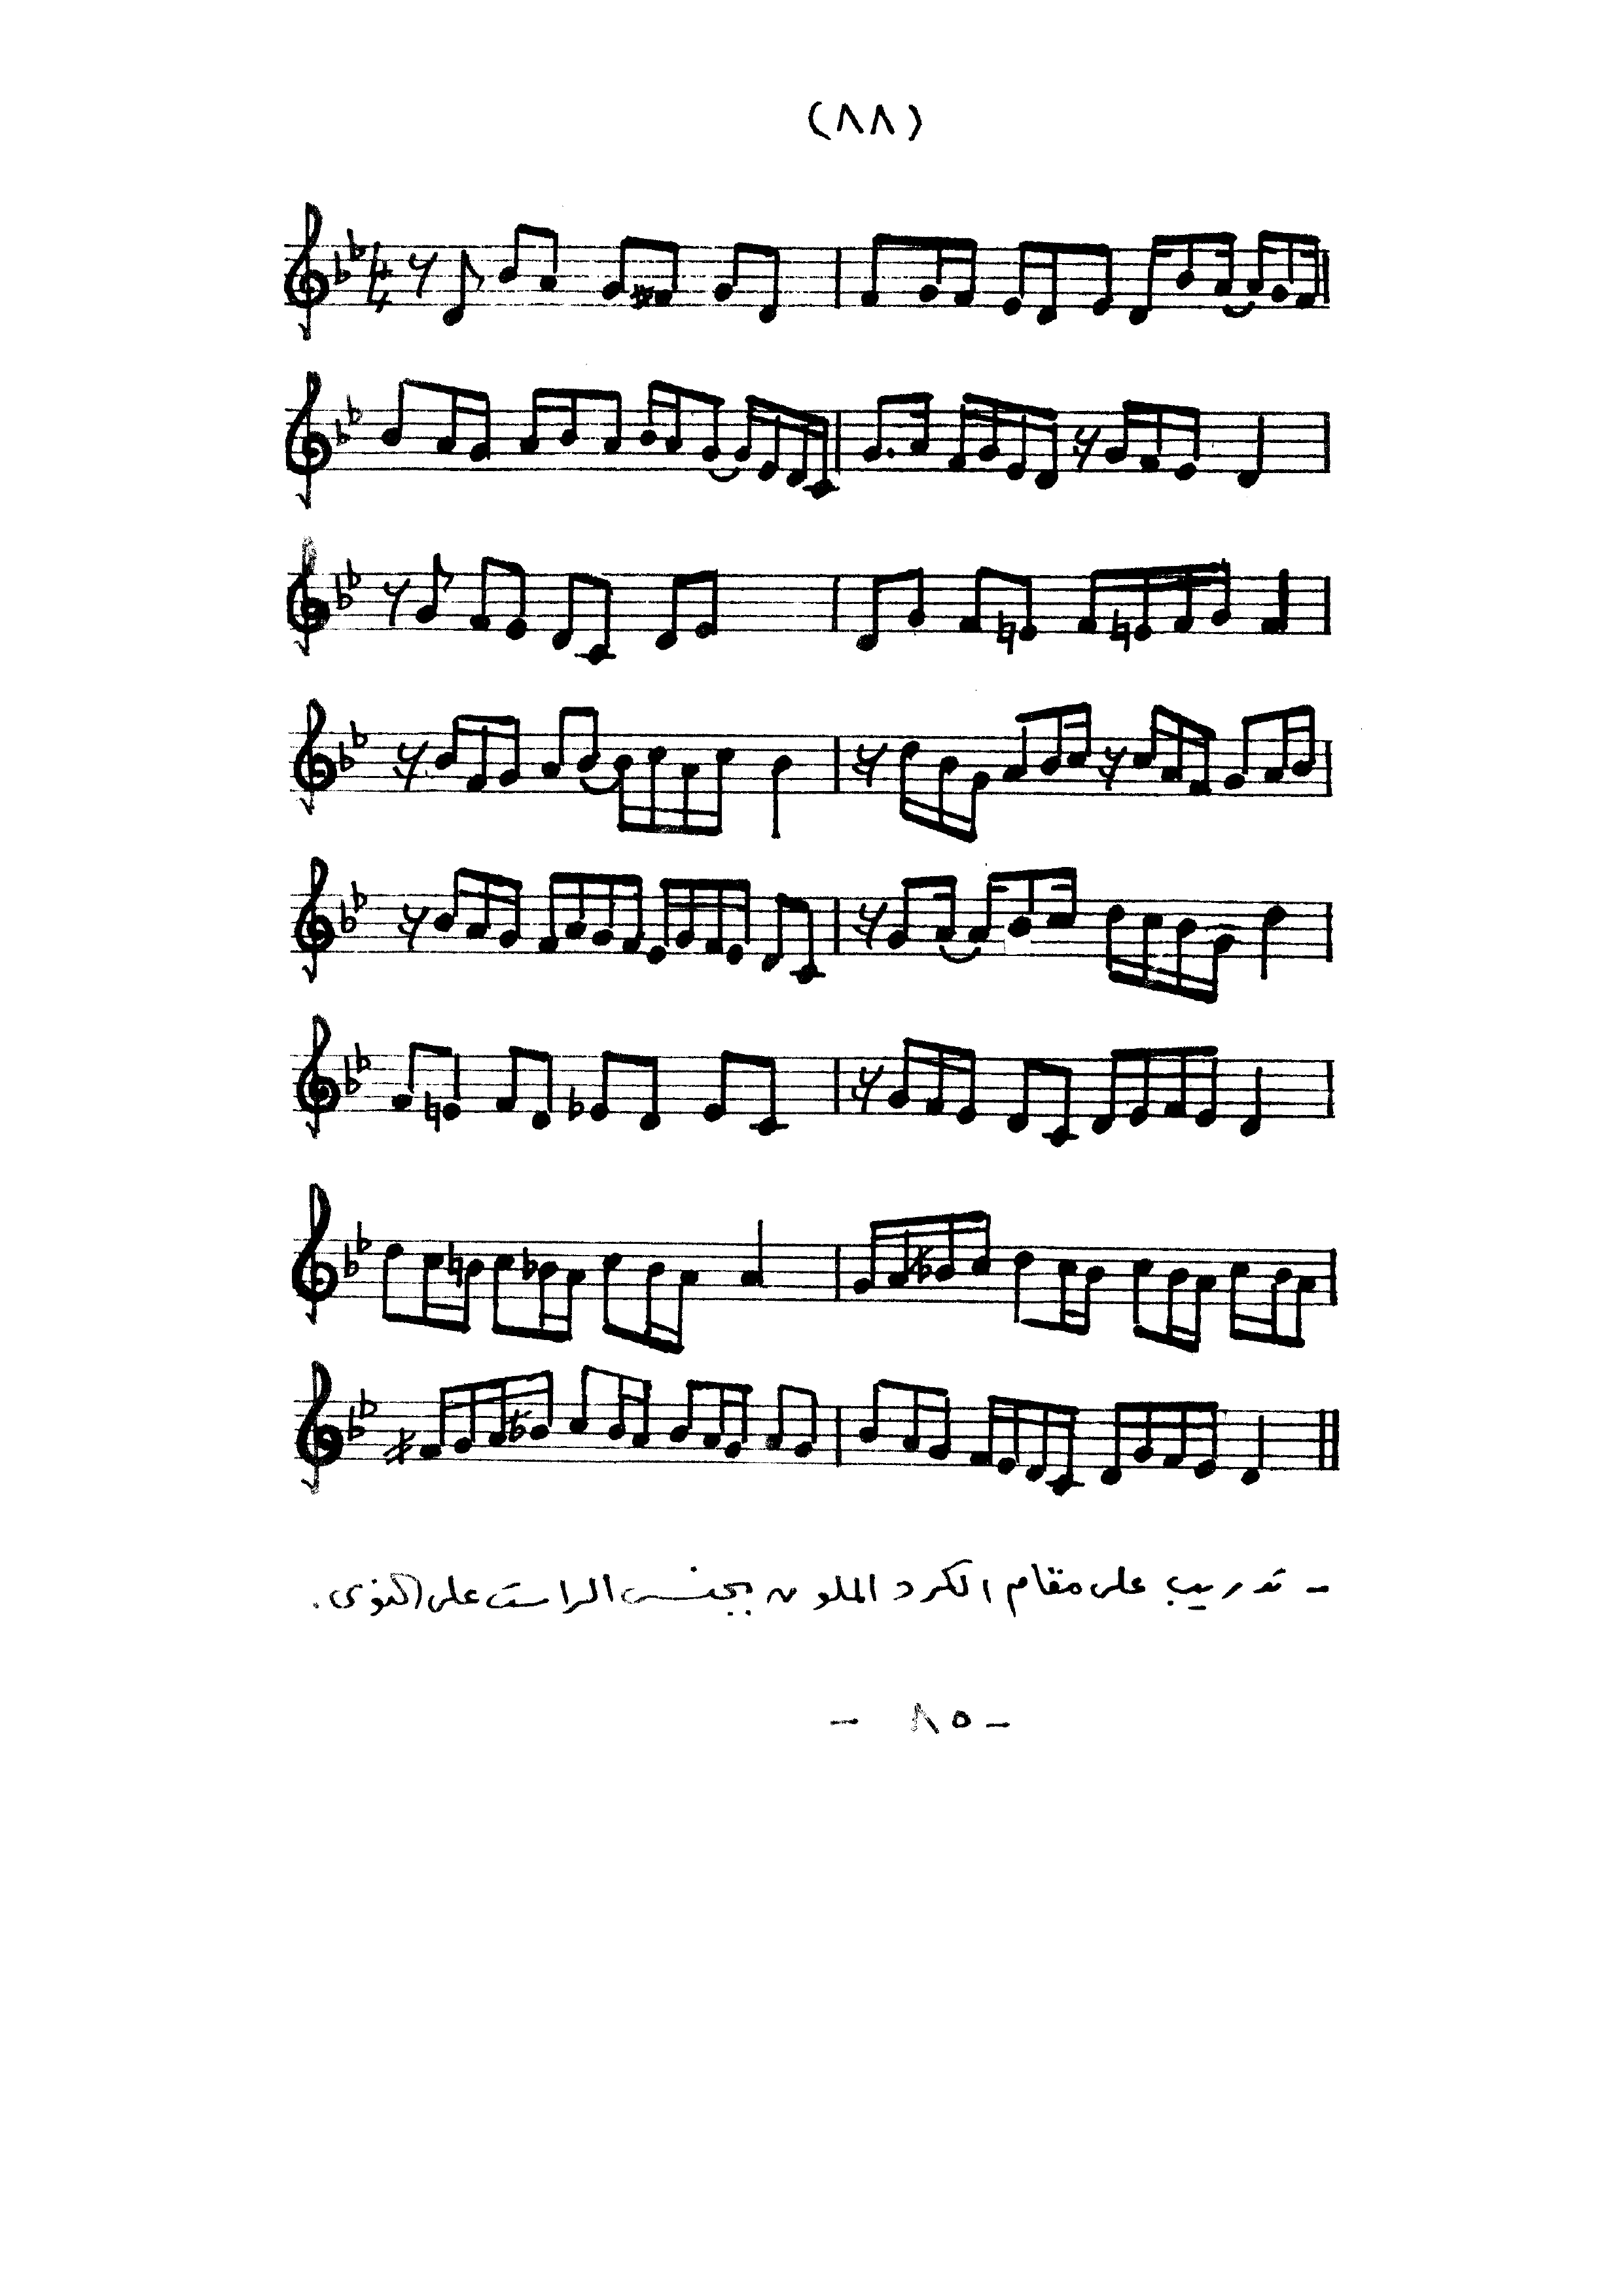 (٨٨)
- تدريب على مقام الكرد الملون بجنس الراست على النوى.
- ٨٥ -